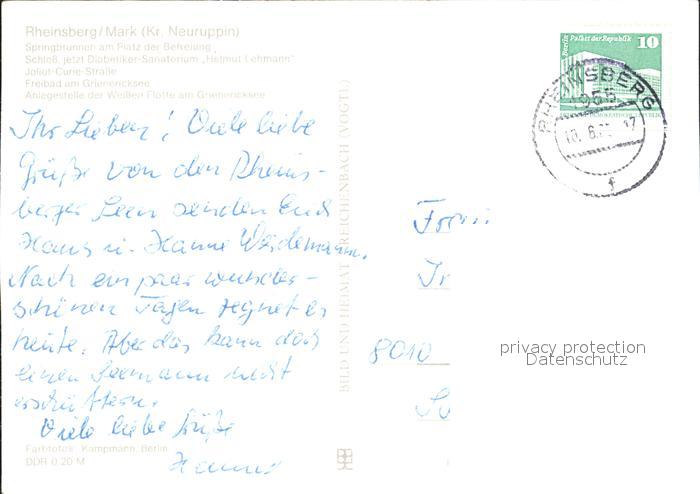 Rheinsberg/Mark (Kr. Neuruppin)
Springbrunnen am Platz der Befreiung
Schloß, jetzt Diabetiker-Sanatorium „Helmut Lehmann"
Joliot-Curie-Straße
Freibad am Grienericksee
Anlegestelle der Weißen Flotte am Grienericksee
Ihr Lieben! Viele liebe
Grüße von den Rheins-
berger Seen senden Euch
Hans u. Hanne Weidemann.
Nach ein paar wunder-
schönen Tagen regnet es
heute. Aber das kann doch
einen Seemann nicht
erschüttern.
Viele liebe Grüße
Hanne
Farbfotos: Kampmann, Berlin
DDR 0,20 M
BILD UND HEIMAT REICHENBACH (VOGTL)
Berlin Palast der Republik
10
RHEINSBERG
1955
10. 6.
17
f
8010
privacy protection
Datenschutz